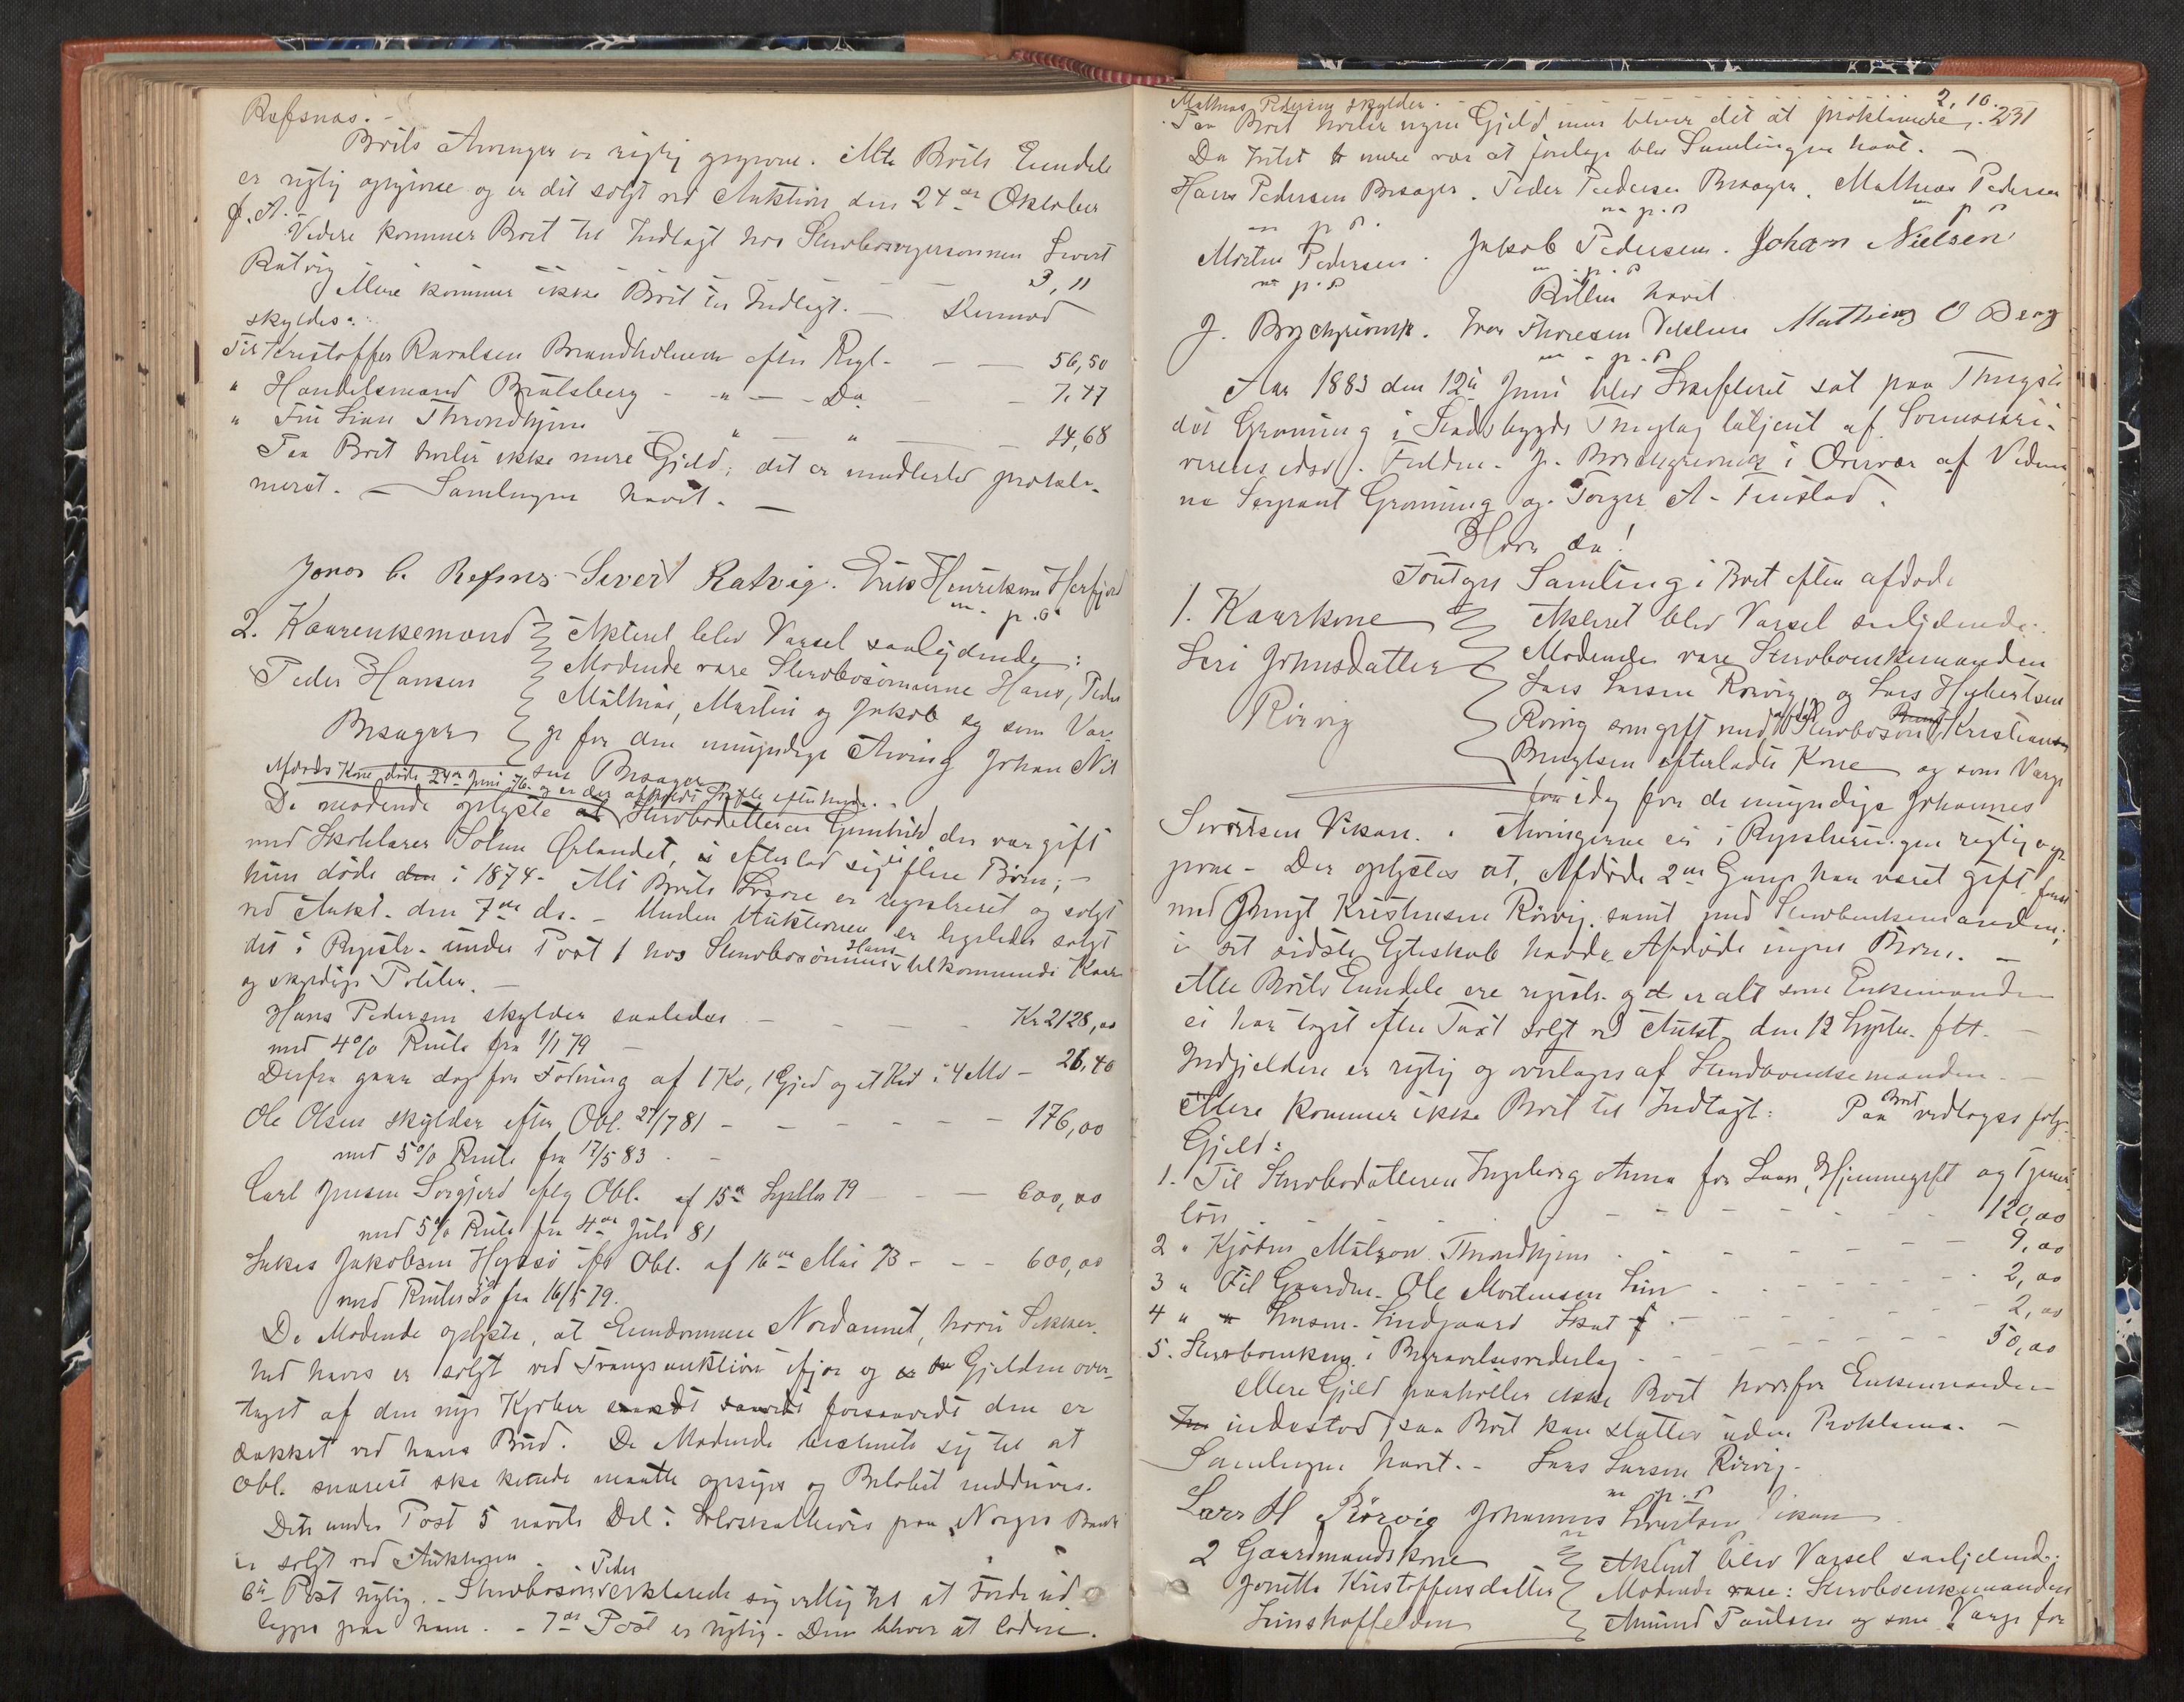 Refsnæs.-
Boets Arvinger er rigtig opgivne. Alle Boets Eiendele
er rigtig opgivne og er det solgt ved Auktion den 24de Oktober
f. A.
Videre kommer Boet til Indtægt hos Stervbosvigersønnen Sivert
Ratvig 3,11
Mere kommer ikke Boet til Indtægt. — Hermod
skyldes:
Til Kristoffer Brandholmen efter Regl. - — — 56,50
" Handelsmand Bratsberg - " — - Do - 7,47
" Fru Lian Throndhjem " — " — 14,68
Paa Boet hviler ikke mere Gjeld; det er imidlertid prokla-
meret. — Samlingen hævet. —
Jonas C. Refsnes - Sivert Ratvig. Erik Henriksen Herfjord
m. p. o.
2. Kaarenkemand Akteret blev Varsel saalydende:
Peder Hansen Mødende vare Stervbosønnerne Hans, Peder
Mathias, Martin og Jakob og som Vær-
Besager ge for den umyndige Arving Johan Niel
sen Besager
Mands Kone døde 24de Juni 76 og er der afholdt Skifte efter hende.
De mødende oplyste at Stervbodatteren Gunhild der var gift
med Skolelærer Solem Ørlandet, ei efterlod sig flere Børn; —
hun døde den i 1874. Alt Boets Løsøre er registreret og solgt
ved Aukt. den 7de ds. - Under Auktionen er ligeledes solgt
det i Registr. under Post 1 hos Stervbosønnen Hans tilkommende Kaar
og skyldige Poster. —
Hans Pedersen skylder saaledes - - - Kr 2128,00
med 4% Rente fra 1/1 79 —
Derfra gaar dog for Fødning af 1 Ko, 1 Gjed og et Kid i 4 Md — 26,40
Ole Olsen skylder efter Obl. 27/7 81 - - - - - 176,00
med 5% Rente fra 17/5 83 . -
Carl Jensen Sørgjerd eftr Obl. af 15de Septbr 79 — — 600,00
med 5% Rente fra 4de Juli 81
Lukas Jakobsen eft Obl. af 16de Mai 73 - - - 600,00
med Renter fra 16/5 79.
De Mødende oplyste, at Eiendommen Nordannet, hvori Sikker-
hed haves er solgt ved Tvangsauktion ifjor og er Gjelden over-
taget af den nye Kjøber forsaavidt den er
dækket ved hans Bud. De Mødende besluttede sig til at
Obl. snarest ske kunde maatte opsiges og Beløbet inddrives.
Det under Post 5 nævnte Del i paa Norges Bank
er solgt ved Auktionen
6te Post rigtig. - Stervbosøn Peder erklærede sig villig til at Fordr. ud
lægges paa ham. - 7de Post er rigtig. Den bliver at lodne.
Mathias Pedersen skylder - - - - 2,10. 231
Paa Boet hviler ingen Gjeld men bliver det at proklamere.
Da Intet mere var at foretage blev Samlingen hævet. —
Hans Pedersen Besager. Peder Pedersen Besager. Mathias Pedersen
m p o. m. p. o m p o
Morten Pedersen. Jakob Pedersen. Johan Nielsen
m p. o m. p. o
Retten hævet
J. Borchgrevink. Iver Thoresen Mathias O Berg
m - p. o
Aar 1883 den 12te Juni blev Skifteret sat paa Thingste-
det Grønning i Stadsbygds Thinglag betjent af Sorenskri-
verens edsv. Fuldm. J. Borchgrevink i Overvær af Vidner
ne Sergeant Grønning og Torger A. Finstad.
Hvor da!
Foretoges Samling i Boet efter afdøde
1. Kaarkone Akteret blev Varsel saalydende.
Siri Johnsdatter Mødende vare Stervboenkemanden
Rørvig Lars Larsen Rørvig, og Lars Hybertsen
Rørvig som gift med afdøde Stervbosøn Kristian
Bengtsen efterladte Kone og som Værge
idag for de umyndige Johannes
Sivertsen Vikan. Arvingerne er i Registreringen rigtig opg
ivne - Der oplystes at, Afdøde 2de Gange har været gift først
med Bengt Kristensen Rørvig samt med Stervboenkemanden;
i sit sidste Egteskab havde Afdøde ingen Børn. —
Alle Boets Eiendele ere registr. og er alt som Enkemanden
ei har taget efter Taxt solgt ved Aukt. den 12 Septbr. f. A. —
Indgjelden er rigtig og overtages af Stervboenkemanden. —
Mere kommer ikke Boet til Indtægt: Paa Boet vedtoges følg.
Gjeld:
1. Til Stervbodatteren Ingeborg Anna for Laan, Hjemmegift og Tjener-
løn - - - - - 120,00
2 " Kjøbm Matzow Throndhjem - - - - 9,00
3 " Til Gaardm. Ole Mortensen Lein - - - - 2,00
4 " Lensm. Lindgaard Skat - - - - 2,00
5. Stervboenkem. i Begravelsesvederlag - - - - 50,00
Mere Gjeld paahviler ikke Boet hvorfor Enkemanden
indestod, saa Boet kan sluttes uden Proklama. —
Samlingen hævet. - Lars Larsen Rørvig.
m p. o
Lars H Rørvig Johannes Sivertsen Vikan
2 Gaardmandskone Akteret blev Varsel saalydende:
Jonetta Kristoffersdatter Mødende vare: Stervboenkemanden
Amund Paulsen og som Værge for